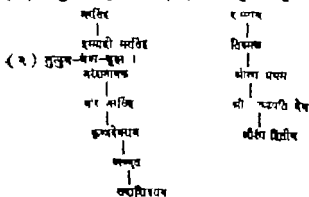 नरसिंह
इम्मादी नरसिंह
(२) तुलुव-वंश-वृक्ष ।
नरसनायक
वीर नरसिंह
कृष्णदेवराय
अच्युत
सदाशिवराय
तिरुमल
श्रीरंग प्रथम
श्री
देव
श्रीरंग द्वितीय